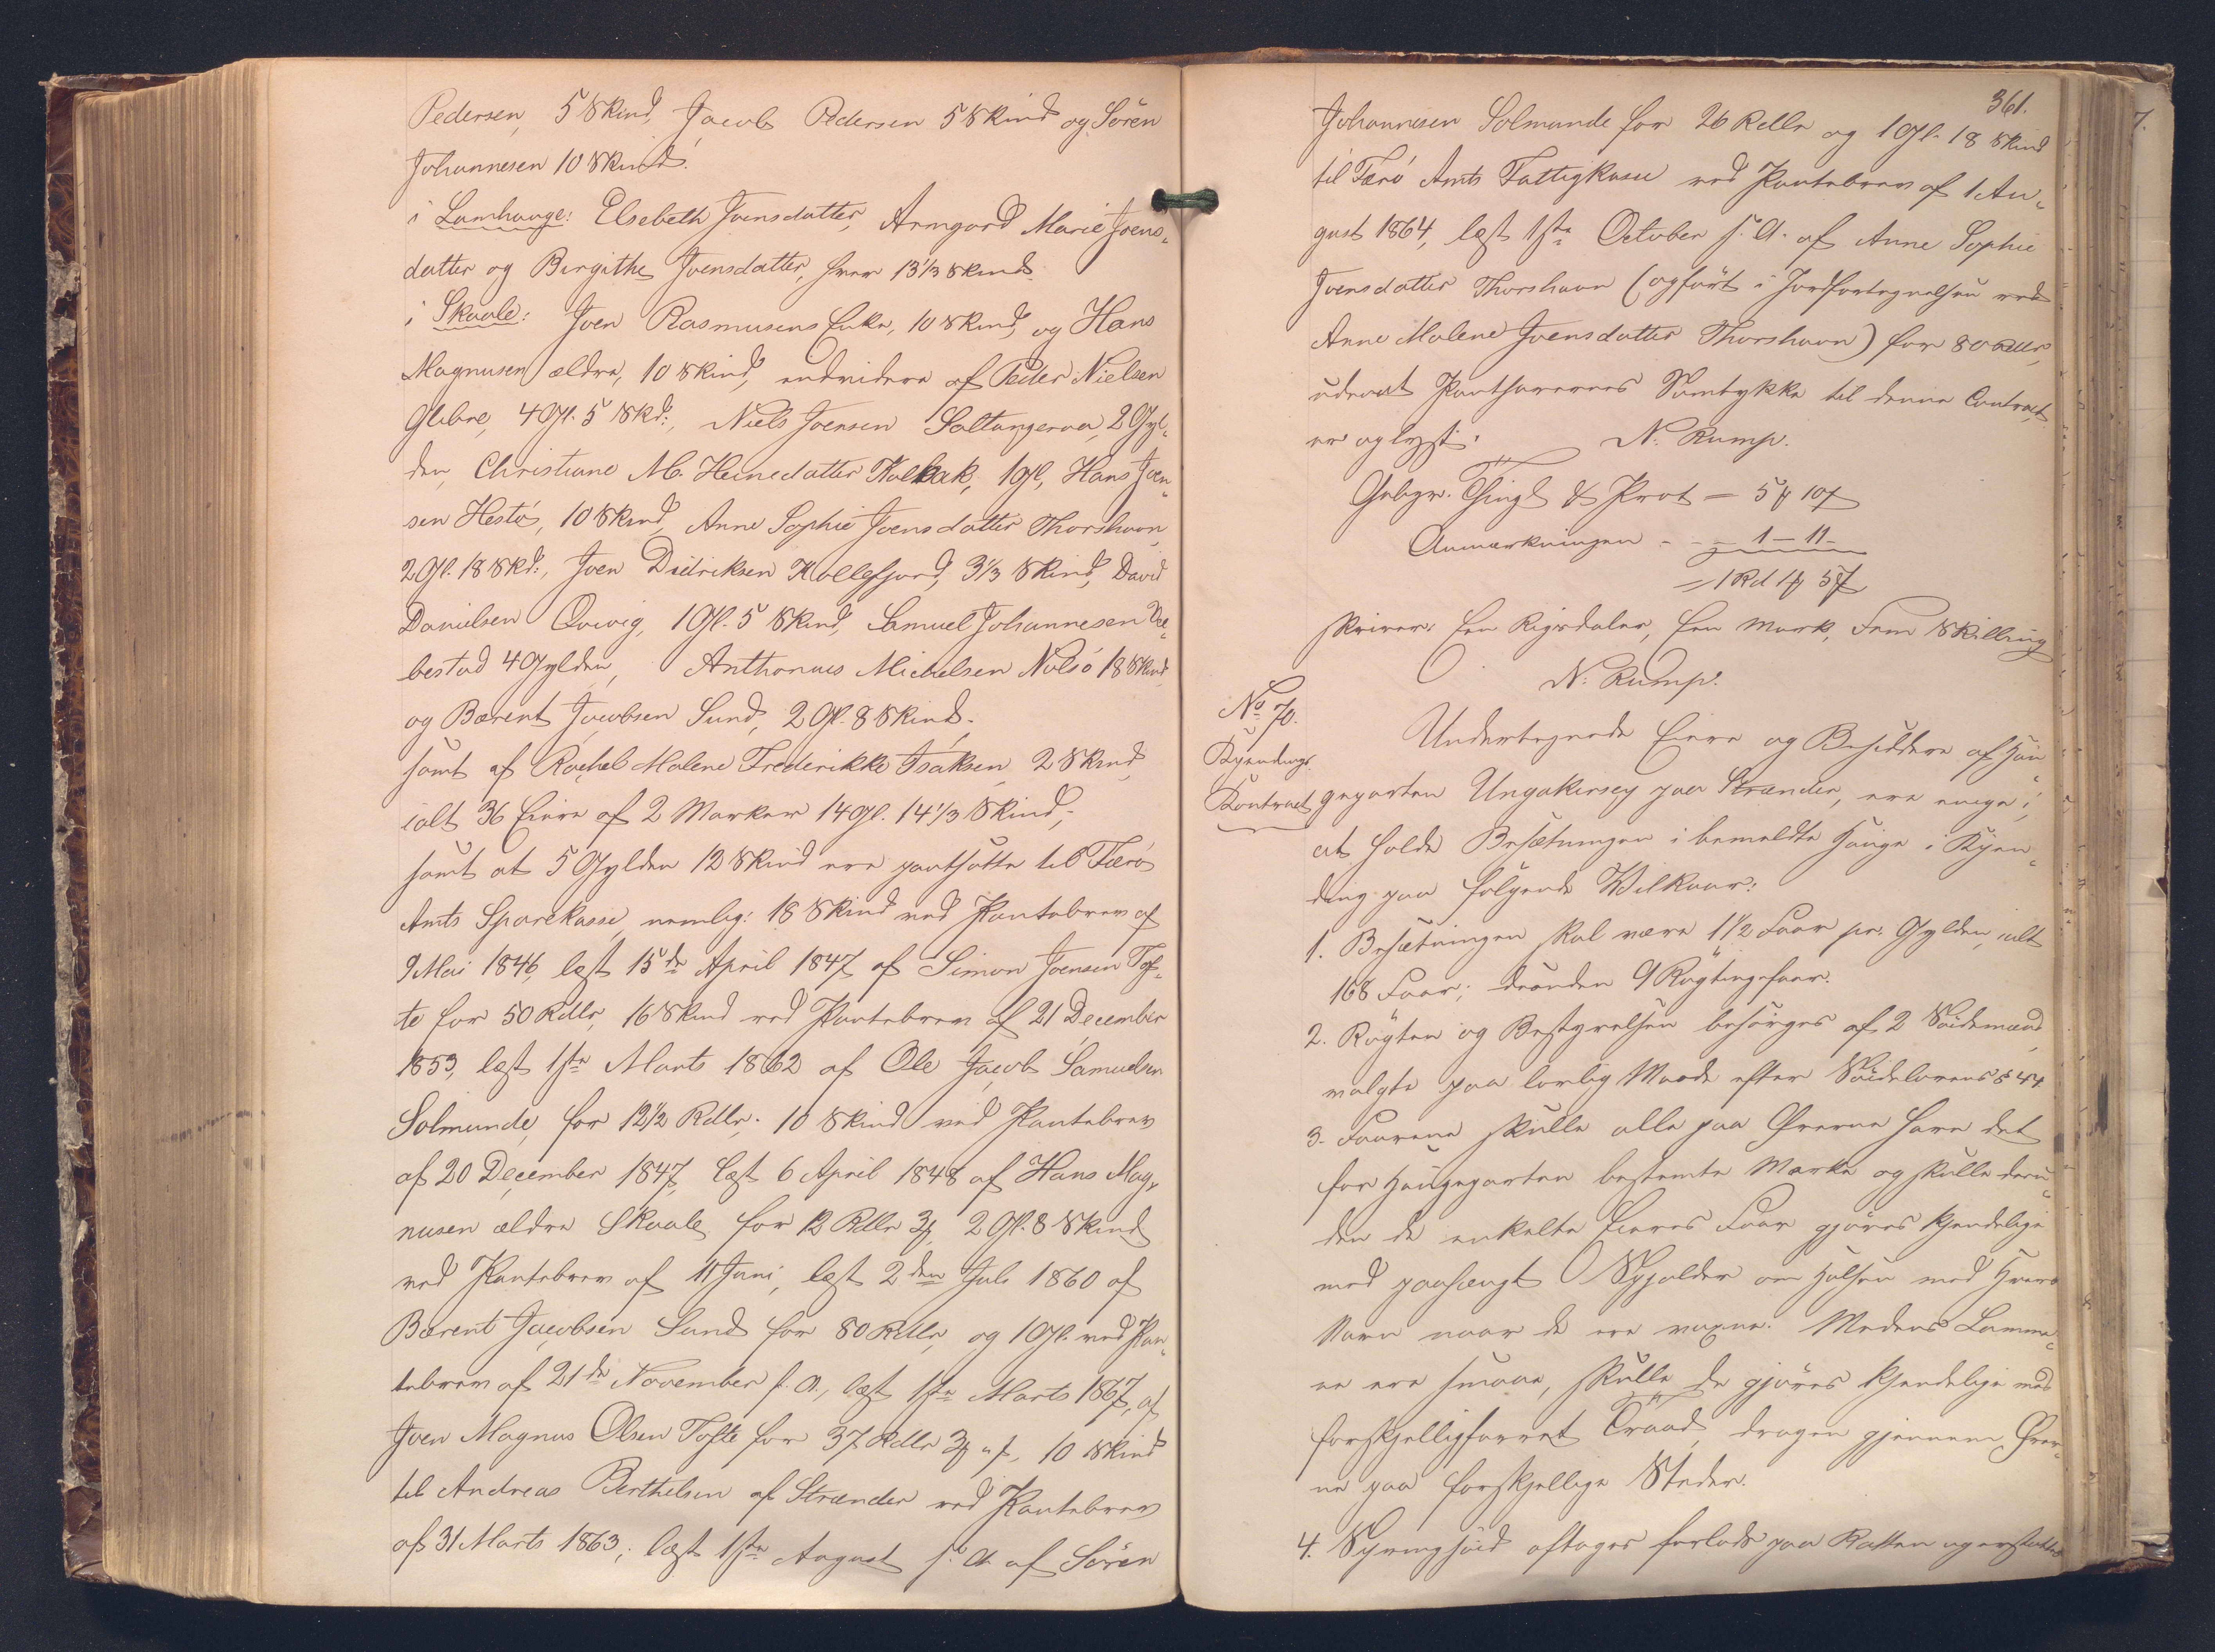 Pedersen, 5 Skind, Jacob Pedersen 5 Skind og Sören
Johannesen 10 Skind.
i Lamhauge: Elsebeth Joensdatter, Armgard Marie Joens-
datter og Birgithe Joensdatter, hver 13 1/3 Skind
i Skaale: Joen Rasmusens Enke, 10 Skind, og Hans
Magnusen ældre, 10 Skind, endvidere af Peder Nielsen
Glibre, 4 Gl. 5 Skd:, Niels Joensen Saltangeraa, 2 Gyl-
den, Christiane M. Heinedatter Kolbak, 1 Gl, Hans Joen-
sen Hestö, 10 Skind, Anne Sophie Joensdatter Thorshavn,
2 Gl. 18 Skd:, Joen Didriksen Kollefjord, 3 1/3 Skind, David
Danielsen Qvivig, 1 Gl. 5 Skind, Samuel Johannesen Ve-
bestad 4 Gylden, Anthonius Michelsen Nolsö 18 Skind,
og Bærent Jacobsen Sund, 2 Gl. 8 Skind.
samt af Rachel Malene Frederikke Isaksen 2 Skind,
ialt 36 Eiere af 2 Marker 14 Gl. 14 1/3 Skind;
samt at 5 Gylden 12 Skind ere pantsatte til Færö
Amts Sparekasse, nemlig: 18 Skind ved Pantebrev af
9 Mai 1846, læst 15de April 1847 af Simon Joensen Tof-
te for 50 Rdlr, 16 Skind ved Pantebrev af 21 December
1853, læst 1ste Marts 1862 af Ole Jacob Samuelsen
Solmunde, for 12 1/2 Rdlr. 10 Skind ved Pantebrev
af 20 December 1847, læst 6 April 1848 af Hans Mag-
nusen ældre Skaale, for 12 Rdlr 3 ℳ, 2 Gl. 8 Skind
ved Pantebrev af 11 Juni, læst 2den Juli 1860 af
Bærent Jacobsen Sund for 80 Rdlr, og 1 Gl. ved Pan-
tebrev af 21de November f. A., læst 1ste Marts 1867, af
Joen Magnus Olsen Tofte for 37 Rdlr 3 ℳ " ß, 10 Skind
til Andreas Berthelsen af Strænder ved Pantebrev
af 31 Marts 1863, læst 1ste August s. A. af Sören
361.
Johannesen Solmunde for 26 Rdlr og 1 Gl. 18 Skind
til Færö Amts Fattigkasse ved Pantebrev af 1 Au-
gust 1864, læst 1ste October s. A. af Anne Sophie
Joensdatter Thorshavn (opfört i Jordfortegnelsen ved
Anne Malene Joensdatter Thorshavn) for 80 Rdlr,
uden at Panthavernes Samtykke til denne Contract
er oplyst.
N. Rump.
Gebyr. Thingl & Prot = 5 ℳ 10 ß
Anmærkningen - - = 1 — 11 -
= 1 Rd 1 ℳ 5 ß
skriver: Een Rigsdaler, Een Mark, Fem Skilling
N. Rump.
No 70.
Kjendings-
Kontract
Undertegnede Eiere og Besiddere af Hau-
geparten Ungakirsey paa Strænder, ere enige i,
at holde Besætningen i bemeldte Hauge i Kjen-
ding paa fölgende Vilkaar:
1. Besætningen skal være 1 1/2 Faar pr. Gylden, ialt
168 Faar; desuden 9 Rögtingsfaar.
2. Rögten og Bestyrelsen besörges af 2 Söidemænd,
valgte paa lovlig Maade efter Söidelovens § 44
3. Faarene skulle alle paa Ørerne have det
for Haugeparten bestemte Mærke og skulle desu-
den de enkelte Eieres Faar gjöres kjendelige
med paahængt Spjalder om Halsen med Hvers
Navn naar de ere voxne. Medens Lamme-
ne ere smaae, skulle de gjöres kjendelige med
forskjelligfarvet Traad, dragen gjennem Ører-
ne paa forskjellige Steder.
4. aftages forlods paa Retten og erstattes